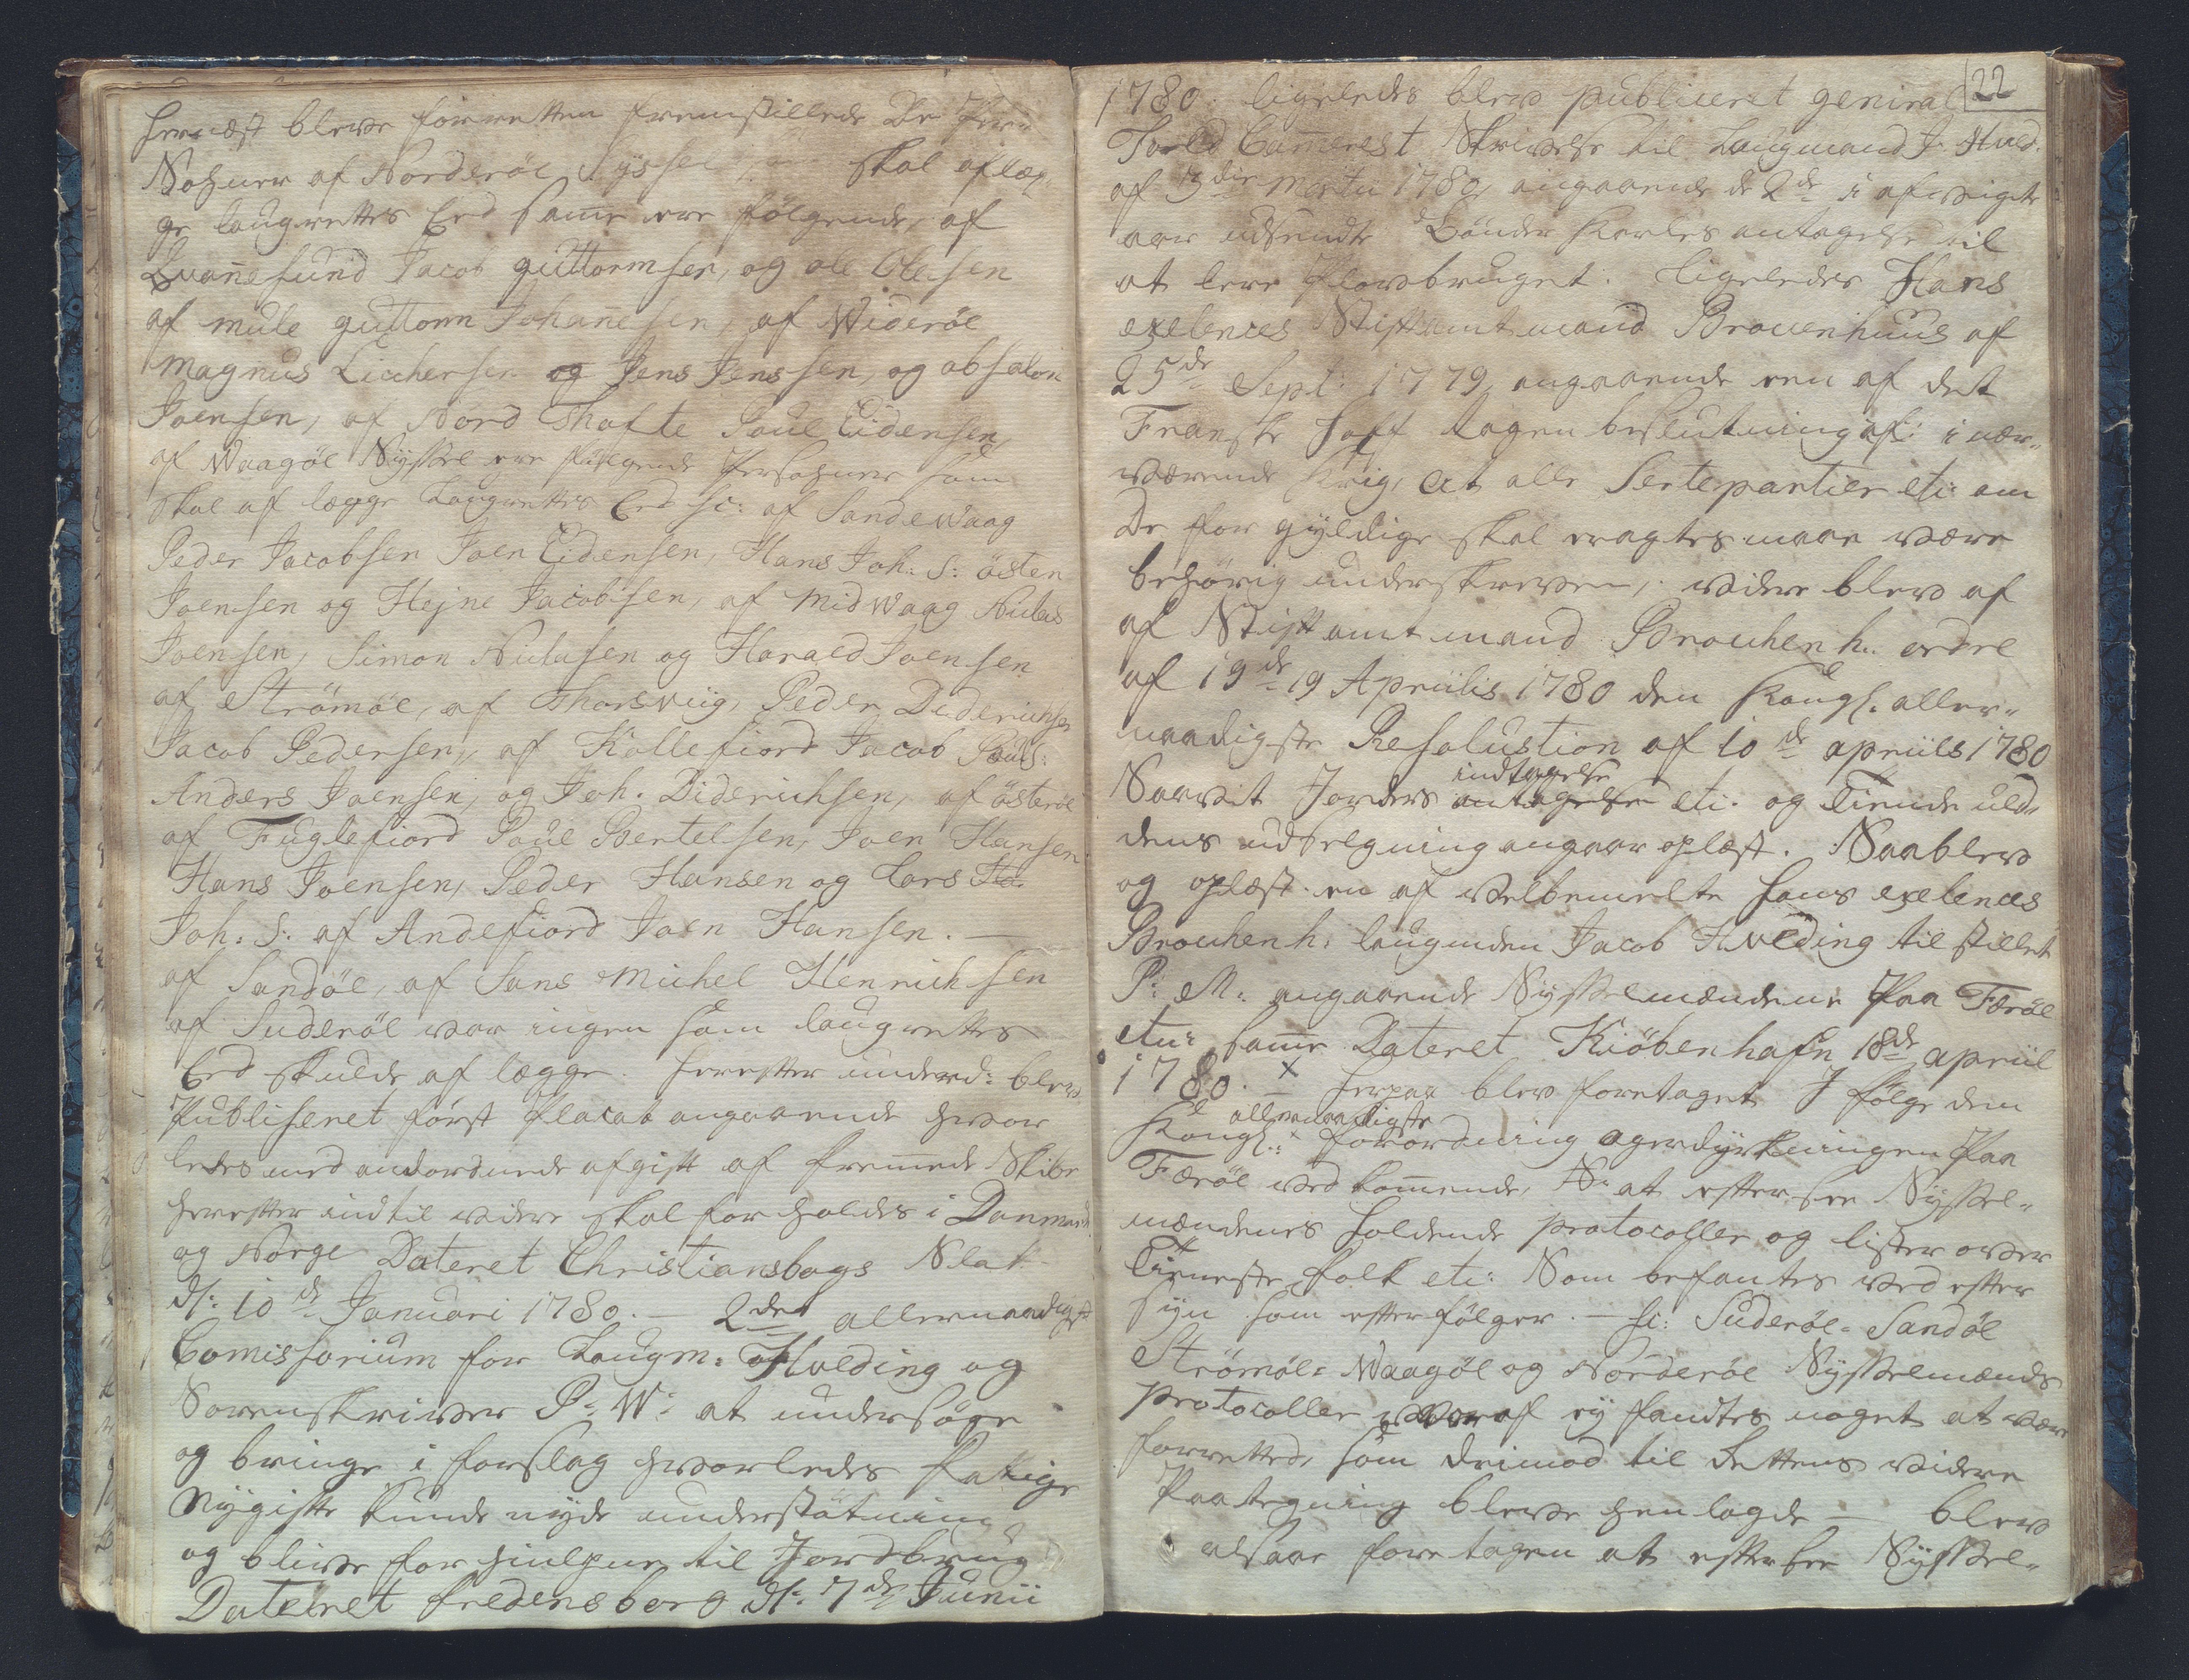 hernæst blewe för retten fremstillede De Per¬
Sohner af Norderöe Sÿssel som skal aflæg¬
ge laugrettes Eed samme ere følgende, af
Qvannesund Jacob guttormsen, og ole Olesen
af mule guttorm Johanesen, af Wideröe
Magnus Liichersen og Jens Jenssen, og absalon
Joensen, af Nord Thofte Poul Eidensen,
af Waagöe Sÿssel ere følgende Persohner som
skal af lægge Laugrettes Eed sc: af Sandewaag
Peder Jacobsen Joen Eidensen, Hans Joh: S: østen
Joensen og Hejne Jacobsen, af Midwaag Niclas
Joensen, Simon Niclasen og Harald Joensen
af Strömöe, af Thorsviig, Peder Dederichsen
Jacob Pedersen, af Kollefiord Jacob Pouls:
Anders Joensen, og Joh. Diderichsen, af österöe
af Fuglefiord Poul Bertelsen, Joen Hansen
Hans Joensen, Peder Hansen og Lars Ha
Joh. S: af Andefiord Joen Hansen. —
af Sandöe, af Sans Michel Henrichsen
af Suderöe war ingen som laugrettes
Eed skulde af lægge. herefter underd: blew
Publiseret först Placat angaaende hwor
ledes med andordnede afgift af fremmede Skibe
herefter indtil widere skal forholdes i Danmark
og Norge Dateret Christiansbogs Slot
d: 10de Januari 1780. — 2det allernaadigst
Comissorium for Laugm: Hvelding og
Sorenskriwer P: W: at undersöge
og bringe i forslag hworledes fattige
Nÿgifte kunde nÿde understøtning
og bliwe forhiulpen til Jordbrug
Dateret fredensborg d: 7de Junii
22
1780. ligeledes blew publiceret general
Told Cammerest Skriwelse til Laugmand J. Hveld.
af 3die Martii 1780, angaaende de 2de i afwigte
aar udsendte Bönder Karles antagelse til
at lere Plowbruget. ligeledes Hans
exelences Stiftamtmand Brouenhuus af
25de Sept: 1779, angaaende een af det
Franske Hoff tagen beslutning af: i nær¬
wærende Krig, at alle Sertepartier etc: om
De for gyldige skal eragtes maae wære
behörig underskrewen, widere blew af
af Stiftamtmand Brouchenh: ordre
af 19de 19 Apriilis 1780 den Kongl. aller¬
naadigste Resolustion af 10de apriils 1780
Saawit Jorders antagelse indtagelse etc. og Tiende uld¬
dens udselgning angaar oplæst. Saa blew
og oplæst en af welbemelte hans exelences
Brouchenh: laugmden Jacob Hvelding til stillet
P: M: angaaende Sÿsselmændene Paa Færöe
etc: samme Dateret Kiöbenhafn 18de apriil
1780. × herpaa blew foretaget I fölge den
Kongl: × allernaadigste forordning agerdÿrkningen Paa
Færöe wedkommende, S: at efter see Sÿssel¬
mændenes holdende protocoller og lister ower
Tieneste folk etc: Som befantes wed efter
sÿn som efterfølger. — sc: Suderöe- Sandöe
Strömöe- Waagöe og Norderöe Sÿsselmænds
protocoller hworaf eÿ fandtes noget at wære
forrettet, som derimod til Rettens widere
Paategning blewe henlagde — blew
alsaa foretagen at eftersee Sÿssel¬